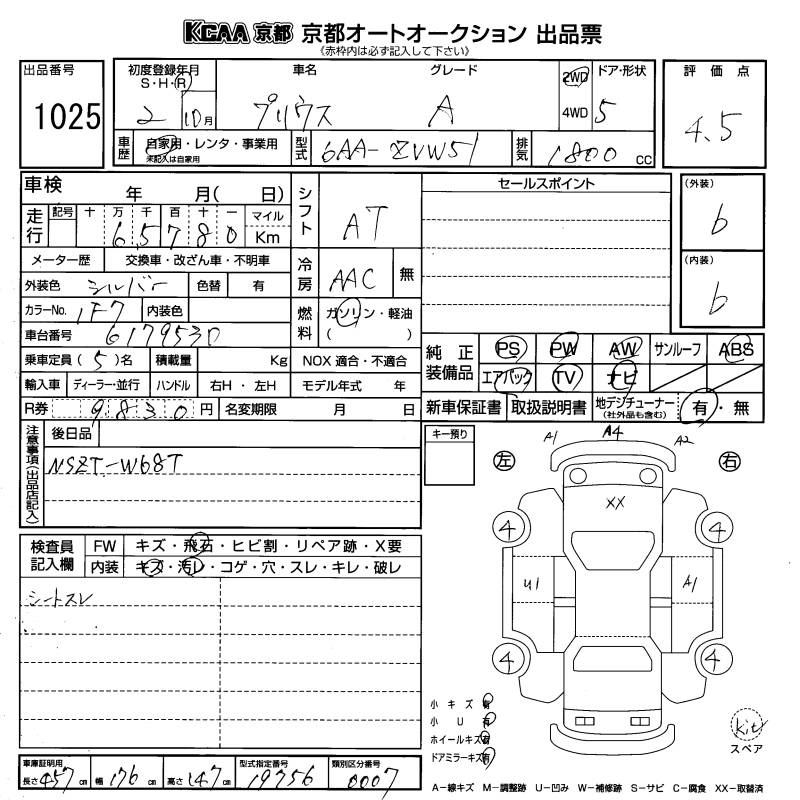 KCAA 京都 京都オートオークション 出品票
《赤枠内は必ず記入して下さい》
出品番号 1025
初度登録年月 S・H・R 2 10月
車名 プリウス
グレード A
2WD 4WD
ドア・形状 5
評価点 4.5
車歴 自家用・レンタ・事業用 未記入は自家用
型式 6AA-ZVW51
排気 1800 cc
車検 年 月( 日)
シフト AT
セールスポイント
(外装) b
走行 記号 十 万 千 百 十 一 マイル
6 5 7 8 0 Km
メーター歴 交換車・改ざん車・不明車
冷房 AAC 無
(内装) b
外装色 シルバー 色替 有
カラーNo. 1F7 内装色
燃料 ガソリン・軽油 ( )
車台番号 6179530
乗車定員 (5) 名 積載量 Kg NOX 適合・不適合
純正装備品 PS PW AW サンルーフ ABS
エアバック TV ナビ
輸入車 ディーラー・並行 ハンドル 右H・左H モデル年式 年
R券 9830円 名変期限 月 日
新車保証書 取扱説明書 地デジチューナー (社外品も含む) 有・無
注意事項(出品店記入) 後日品
NSZT-W68T
キー預り
A1 A4 A2
左 右
XX
4 4
検査員記入欄 FW キズ・飛石・ヒビ割・リペア跡・X要
内装 キズ・汚レ・コゲ・穴・スレ・キレ・破レ
シートスレ
U1 A1
4 4
小キズ有
小U有
ホイールキズ有
ドアミラーキズ有
kit
スペア
車庫証明用 長さ 457cm 幅 176cm 高さ 147cm
型式指定番号 19756
類別区分番号 0007
A-線キズ M-調整跡 U-凹み W-補修跡 S-サビ C-腐食 XX-取替済